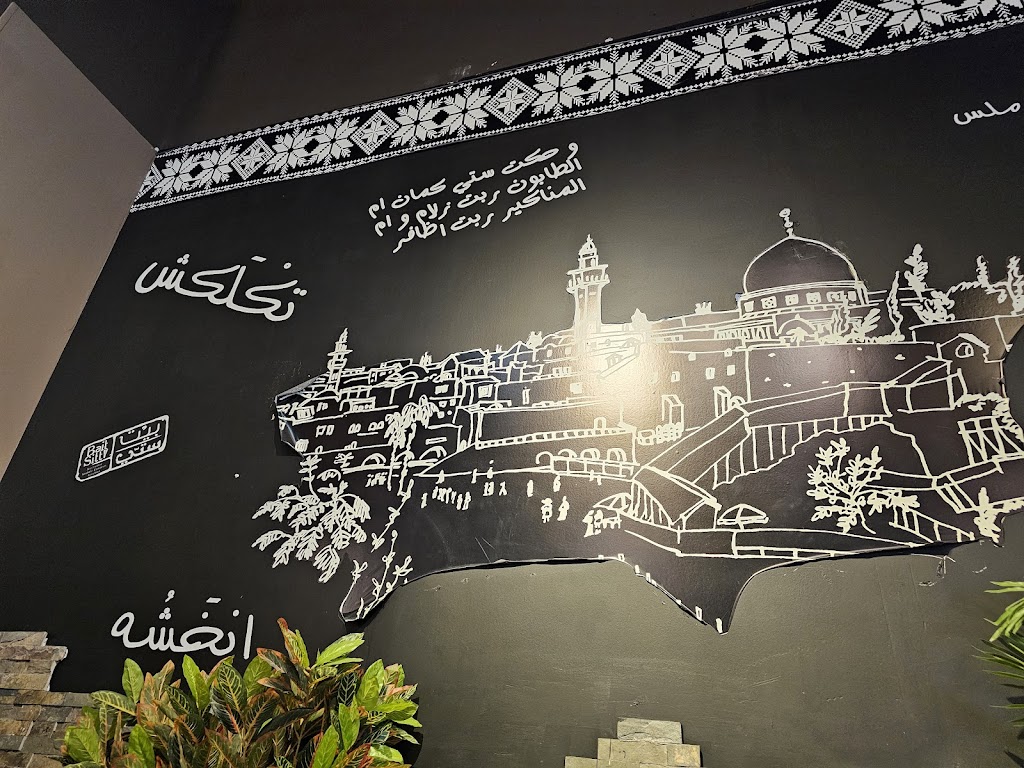 ملس
كت ستي كمان ام
الطابون ربت زلام و ام
المناكير ربت اظافر
تَخَلكش
بيت
ستي
Bait
Sitti
انخَمُشه